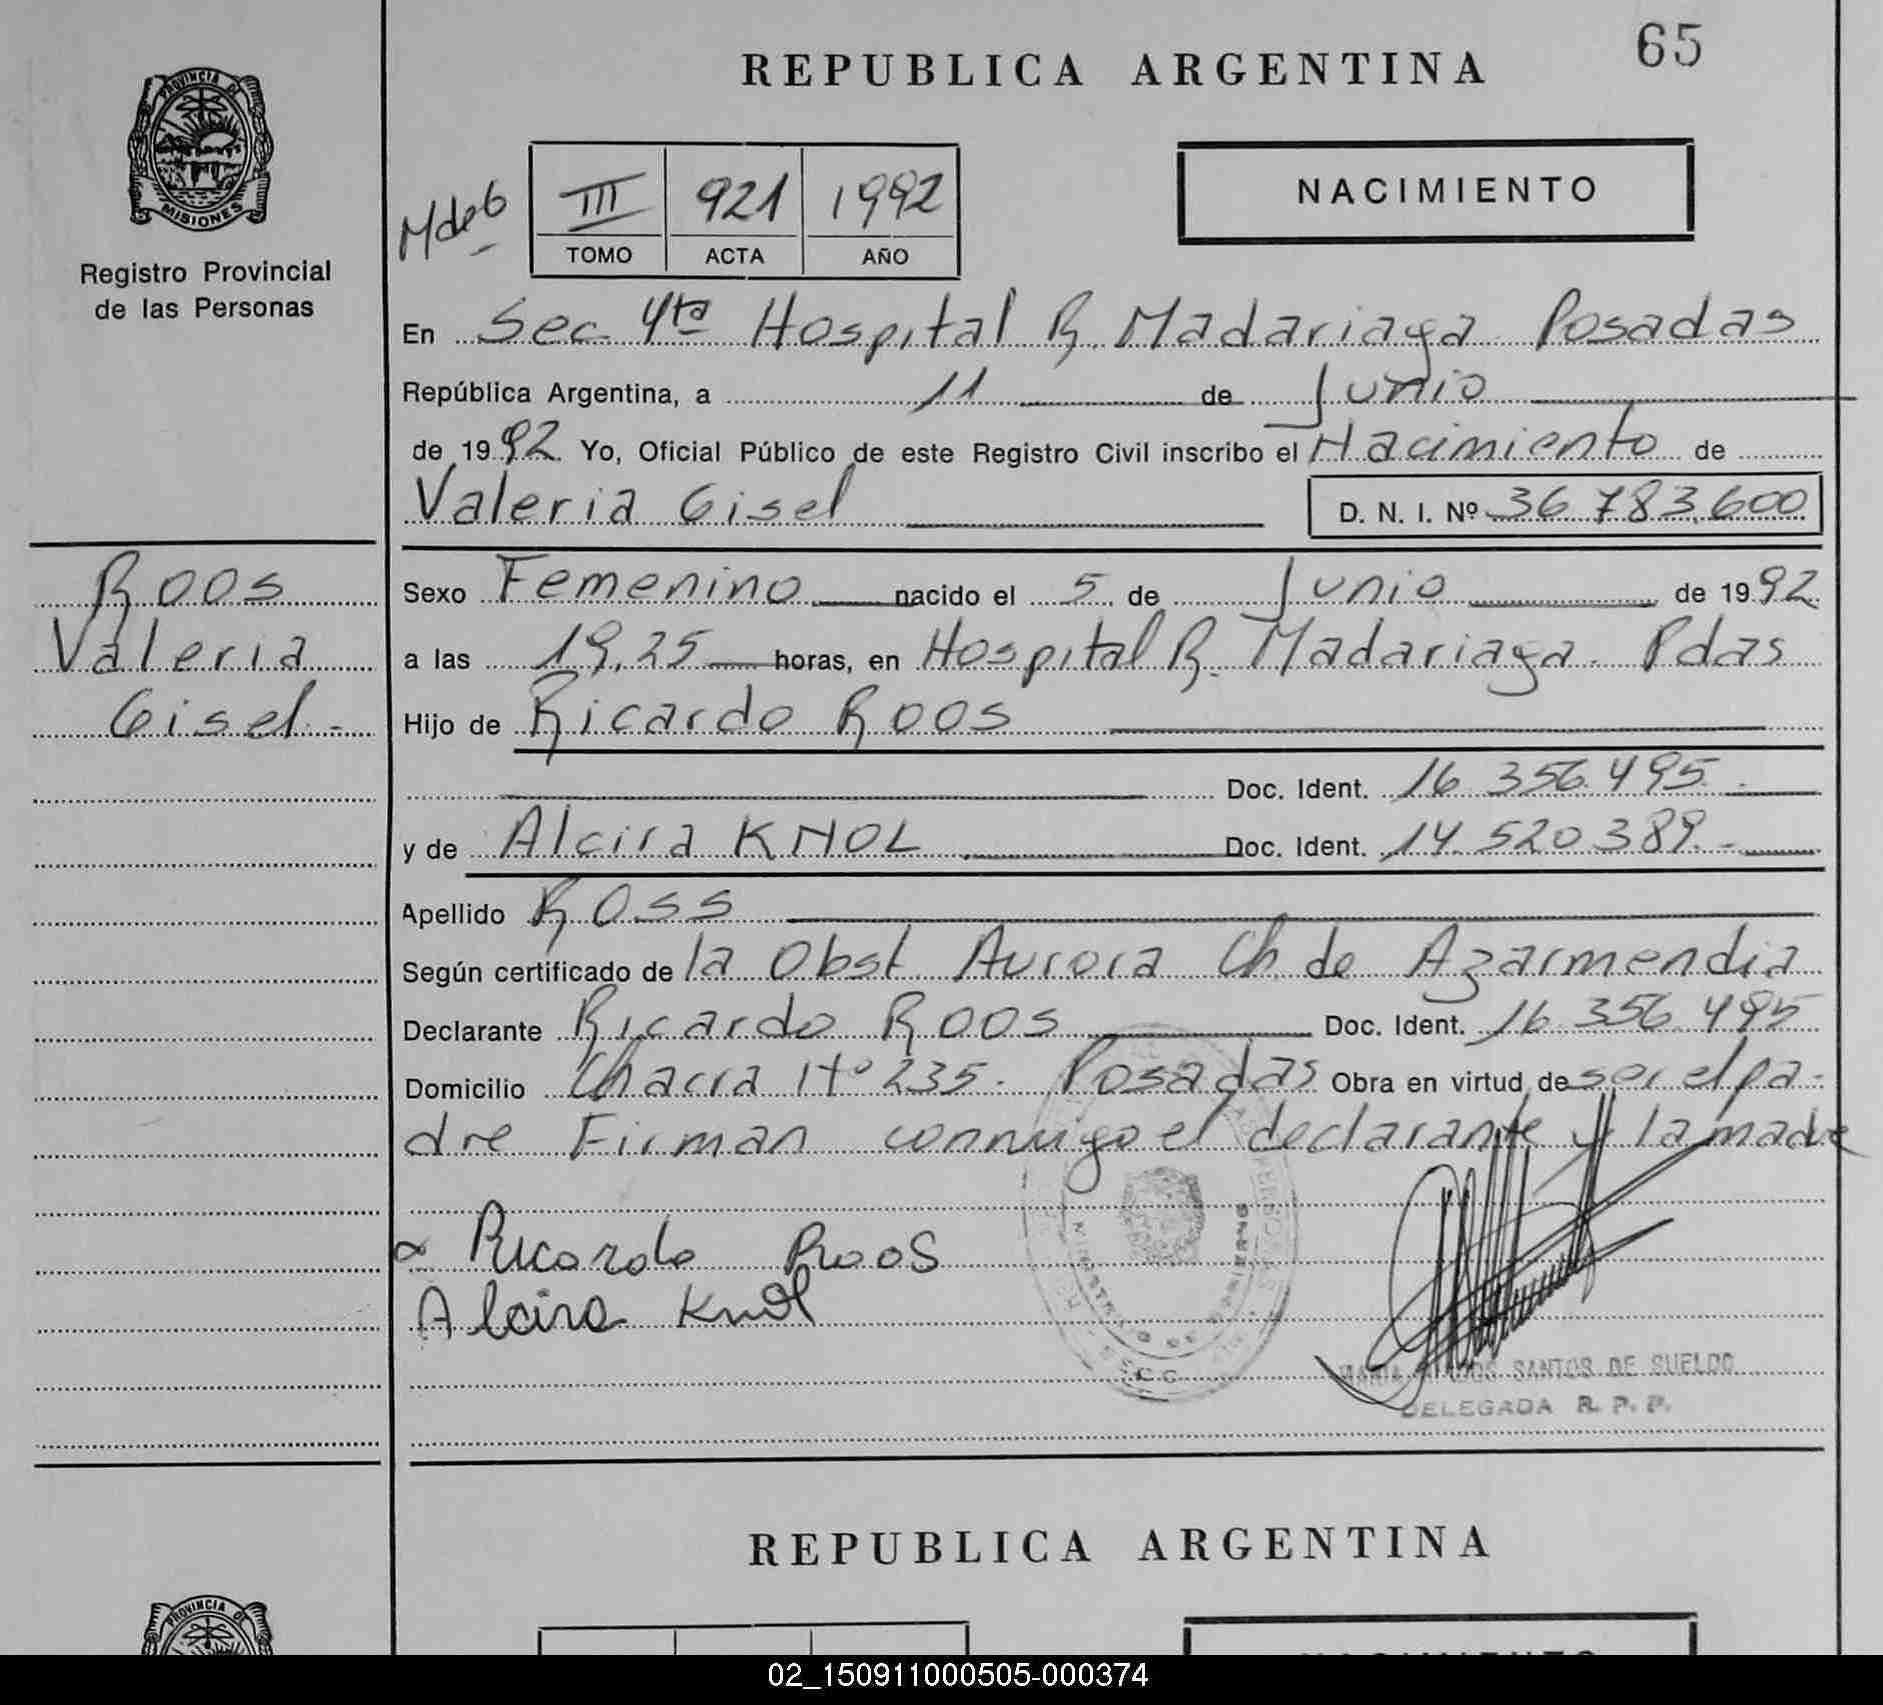 REPUBLICA ARGENTINA
65
PROVINCIA DE
MISIONES
Registro Provincial
de las Personas
III
921
1992
TOMO
ACTA
AÑO
NACIMIENTO
En Sec. 4ta Hospital R. Madariaga Posadas
República Argentina, a 11 de Junio
de 1992 Yo, Oficial Público de este Registro Civil inscribo el Nacimiento de
Valeria Gisel
D. N. I. Nº 36 783.600
Roos
Valeria
Gisel.-
Sexo Femenino nacido el 5 de Junio de 1992
a las 19,25 horas, en Hospital R. Madariaga. Pdas
Hijo de Ricardo Roos
Doc. Ident. 16 356.495.-
y de Alcira KNOL Doc. Ident. 14.520 389.-
Apellido Ross
Según certificado de la Obst. Aurora Ch. de Azarmendia
Declarante Ricardo Roos Doc. Ident. 16 356 495
Domicilio Chacra Nº 235. Posadas Obra en virtud de ser el pa-
dre Firman conmigo el declarante y la madre
Ricardo Roos
Alcira Knol
MINISTERIO DE GOBIERNO
SANTOS DE SUELDO
DELEGADA R. P. P.
REPUBLICA ARGENTINA
PROVINCIA DE
NACIMIENTO
02_150911000505-000374